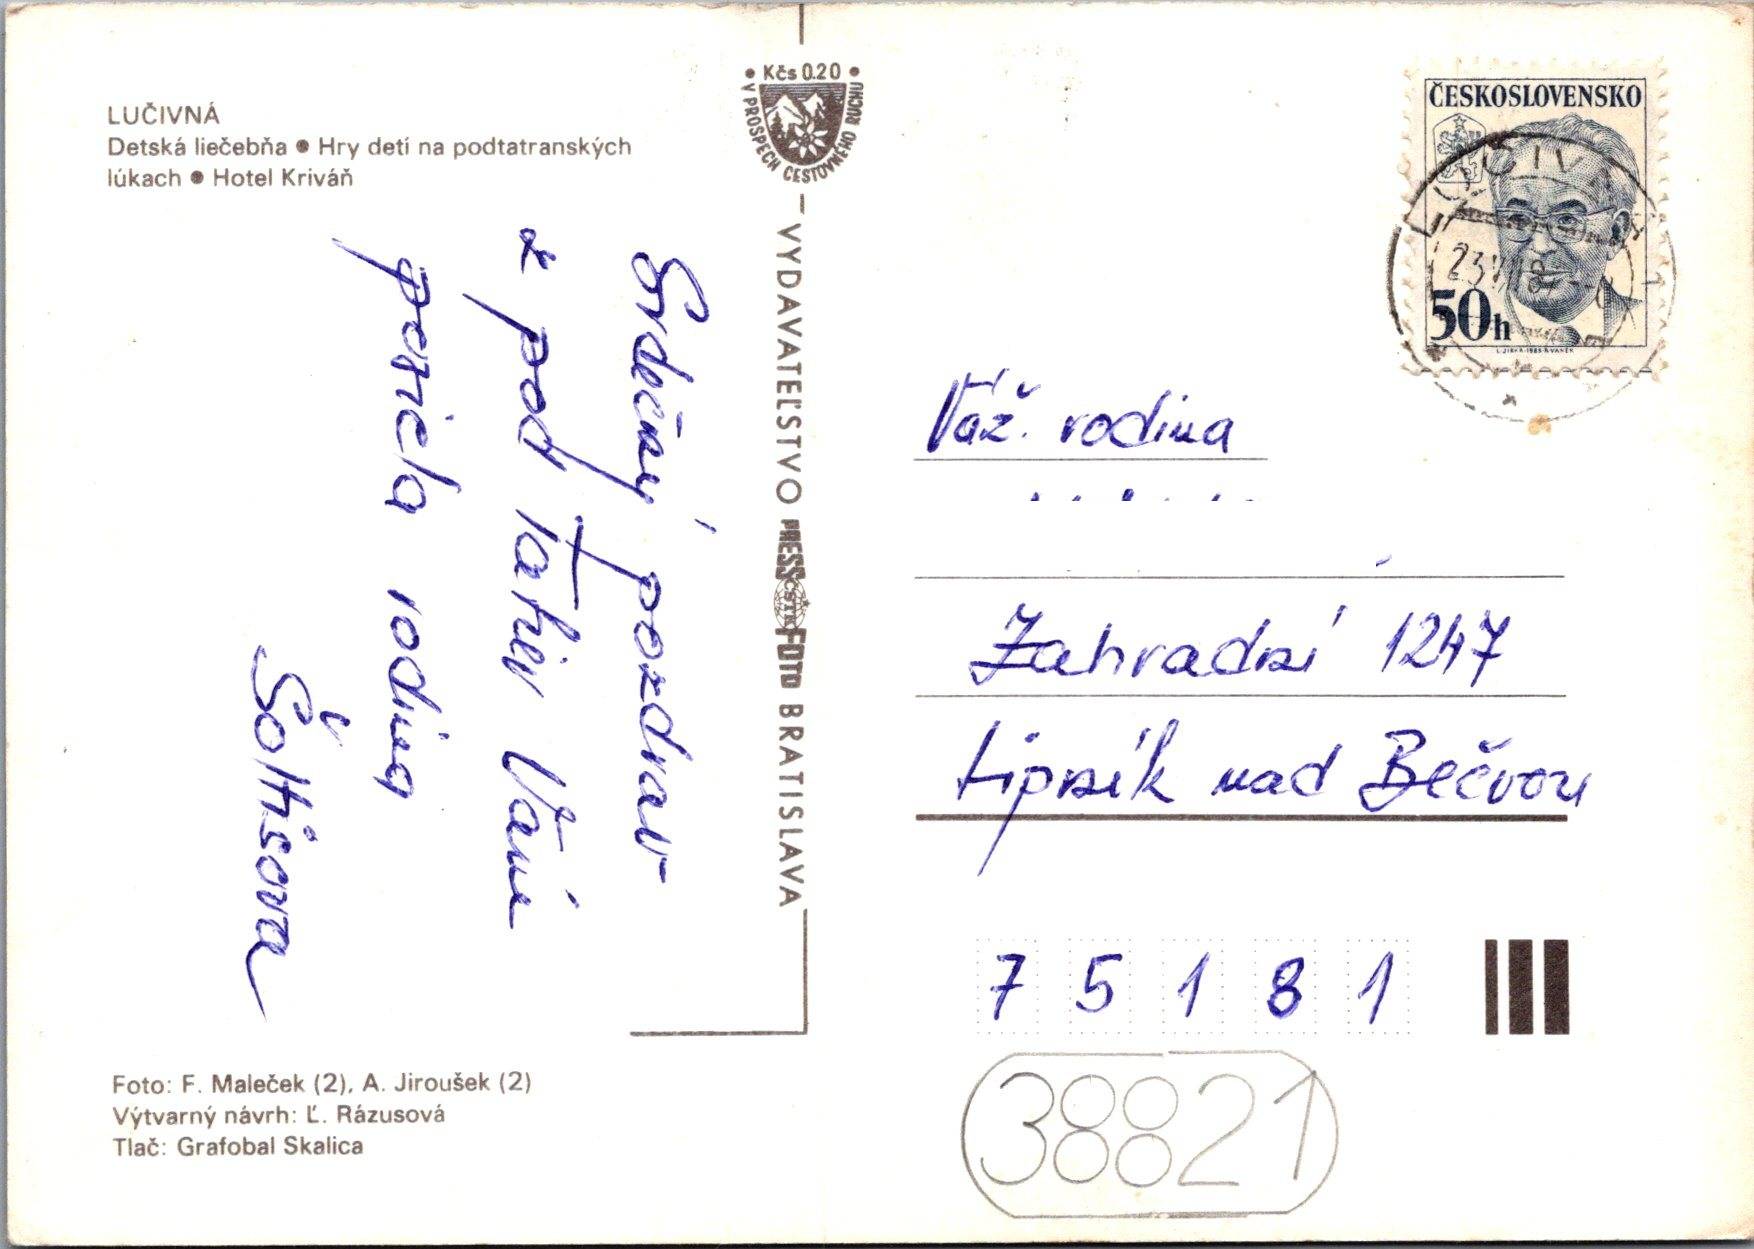 LUČIVNÁ
Detská liečebňa ● Hry detí na podtatranských
lúkach ● Hotel Kriváň
• Kčs 0.20 •
V PROSPECH CESTOVNÉHO RUCHU
VYDAVATEĽSTVO PRESSFOTO BRATISLAVA
ČSTK
ČESKOSLOVENSKO
50h
Srdečný pozdrav
z pod Tatier Vám
posiela rodina
Šoltisova
Váž. rodina
Zahradní 1247
Lipník nad Bečvou
7 5 1 3 1
38821
Foto: F. Maleček (2), A. Jiroušek (2)
Výtvarný návrh: Ľ. Rázusová
Tlač: Grafobal Skalica